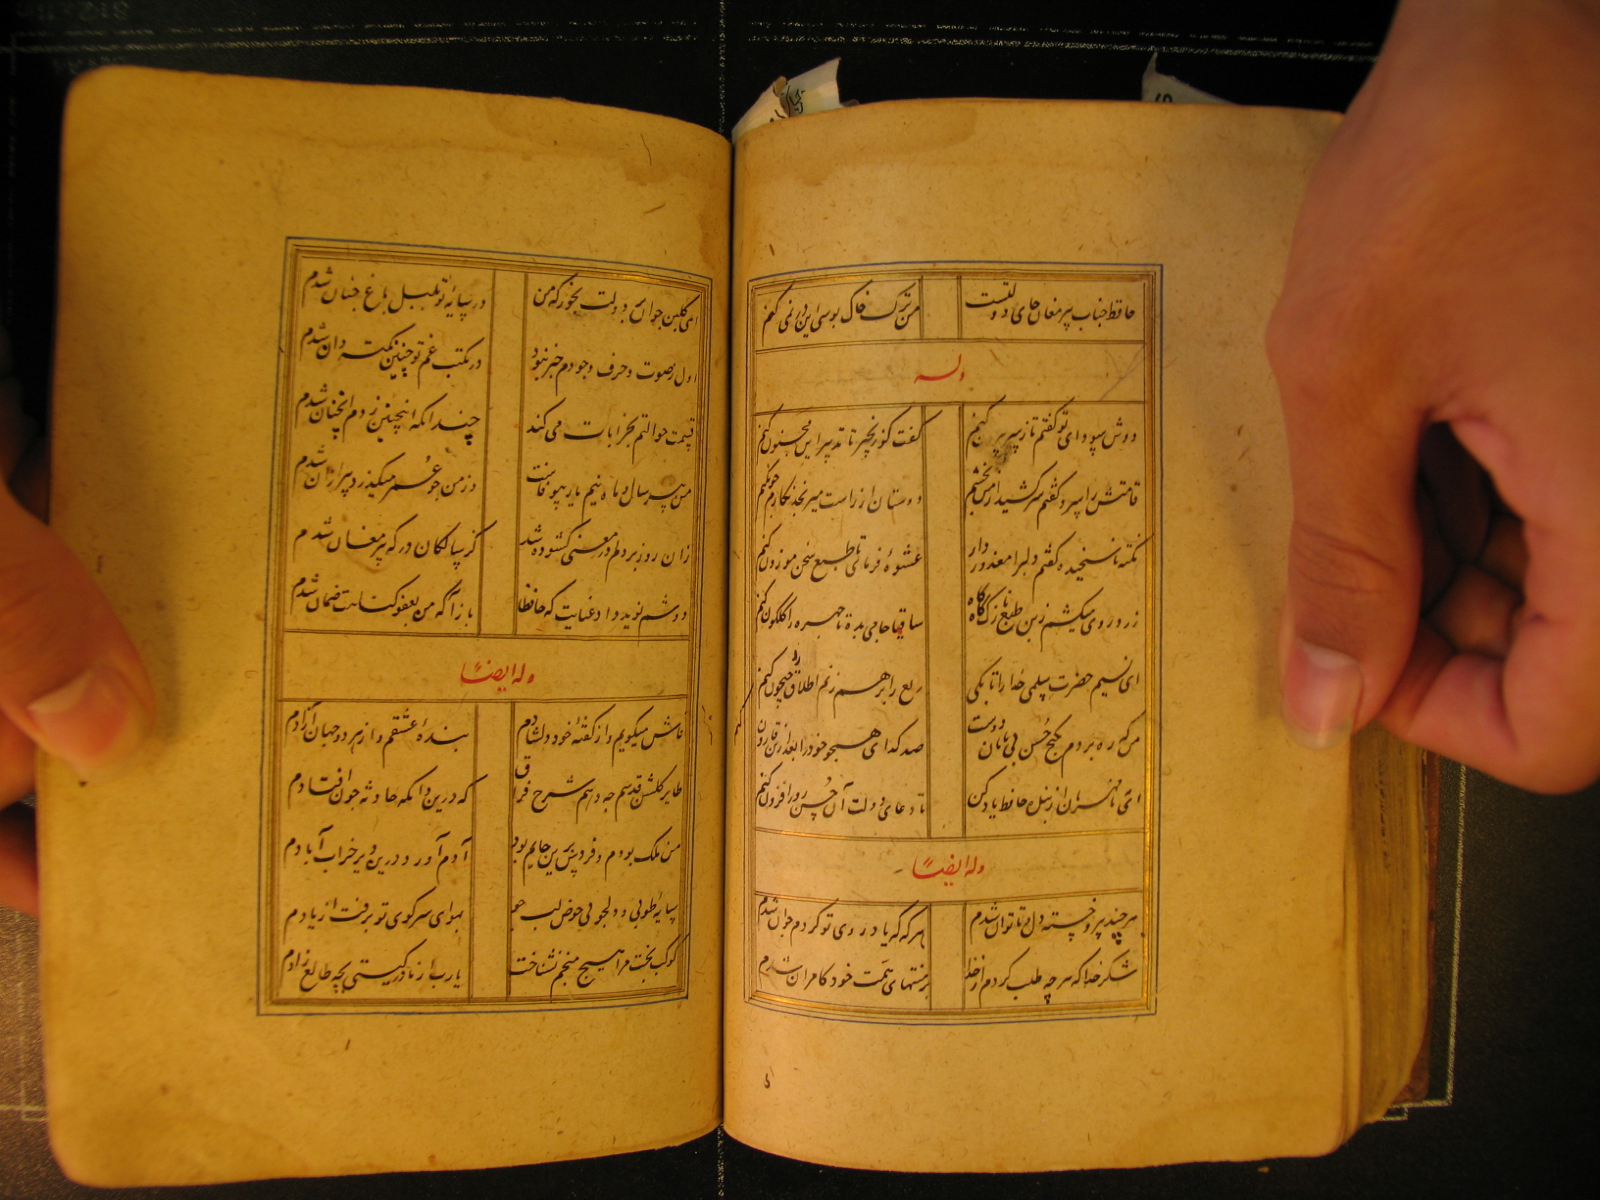 حافظ جناب پیر مغان جای دولتست
من ترک خاک بوسی این در نمی کنم
وله
دوش سودای تو گفتم تا ز سر بیرون کنم
گفت کو زنجیر تا تدبیر این مجنون کنم
قامتش را سرو گفتم سر کشید از من بخشم
دوستان از راست میرنجد نکارم چون کنم
نکته ناسنجیده گفتم دلبرا معذور دار
عشوهٔ فرمای تا طبع سخن موزون کنم
زرد رویی میکشم زین طبع نازک گاه گاه
ساقیا جامی بده تا چهره را گلگون کنم
ای نسیم حضرت سلمی خدا را تا بکی
ربع را بر هم زنم اطلال را جیحون کنم
من که ره بردم بگنج حسن بی پایان دوست
صد کدای همچو خود را بعد ازین قارون کنم
ای مه نامهربان از بنده حافظ یاد کن
تا دعای دولت آن حسن روز افزون کنم
وله ایضاً
هر چند پیر و خسته دل و ناتوان شدم
هر که که یاد روی تو کردم جوان شدم
شکر خدا که هر چه طلب کردم از خدا
بر منتهای همت خود کامران شدم
ای گلبن جوان بر دولت بخور که من
در سایهٔ تو بلبل باغ جنان شدم
اول ز صوت و حرف وجودم خبر نبود
در مکتب غم تو چنین نکته دان شدم
قسمت حوالتم بخرابات می کند
چندانکه اینچنین زدم و انچنان شدم
من پیر سال و ماه نیم یار بیوفاست
بر من چو عمر میگذرد پیر از ان شدم
زان روز بر دلم در معنی گشوده شد
کز ساکنان درگه پیر مغان شدم
دوشم نوید داد عنایت که حافظا
باز آ که من بعفو گناهت ضمان شدم
وله ایضاً
فاش میگویم و از گفتهٔ خود دلشادم
بندهٔ عشقم و از هر دو جهان آزادم
طایر گلشن قدسم چه دهم شرح فراق
که درین دامگه حادثه چون افتادم
من ملک بودم و فردوس برین جایم بود
آدم آورد درین دیر خراب آبادم
سایه طوبی و دلجویی حور و لب حوض
بهوای سر کوی تو برفت از یادم
کوکب بخت مرا هیچ منجم نشناخت
یا رب از مادر گیتی بچه طالع زادم